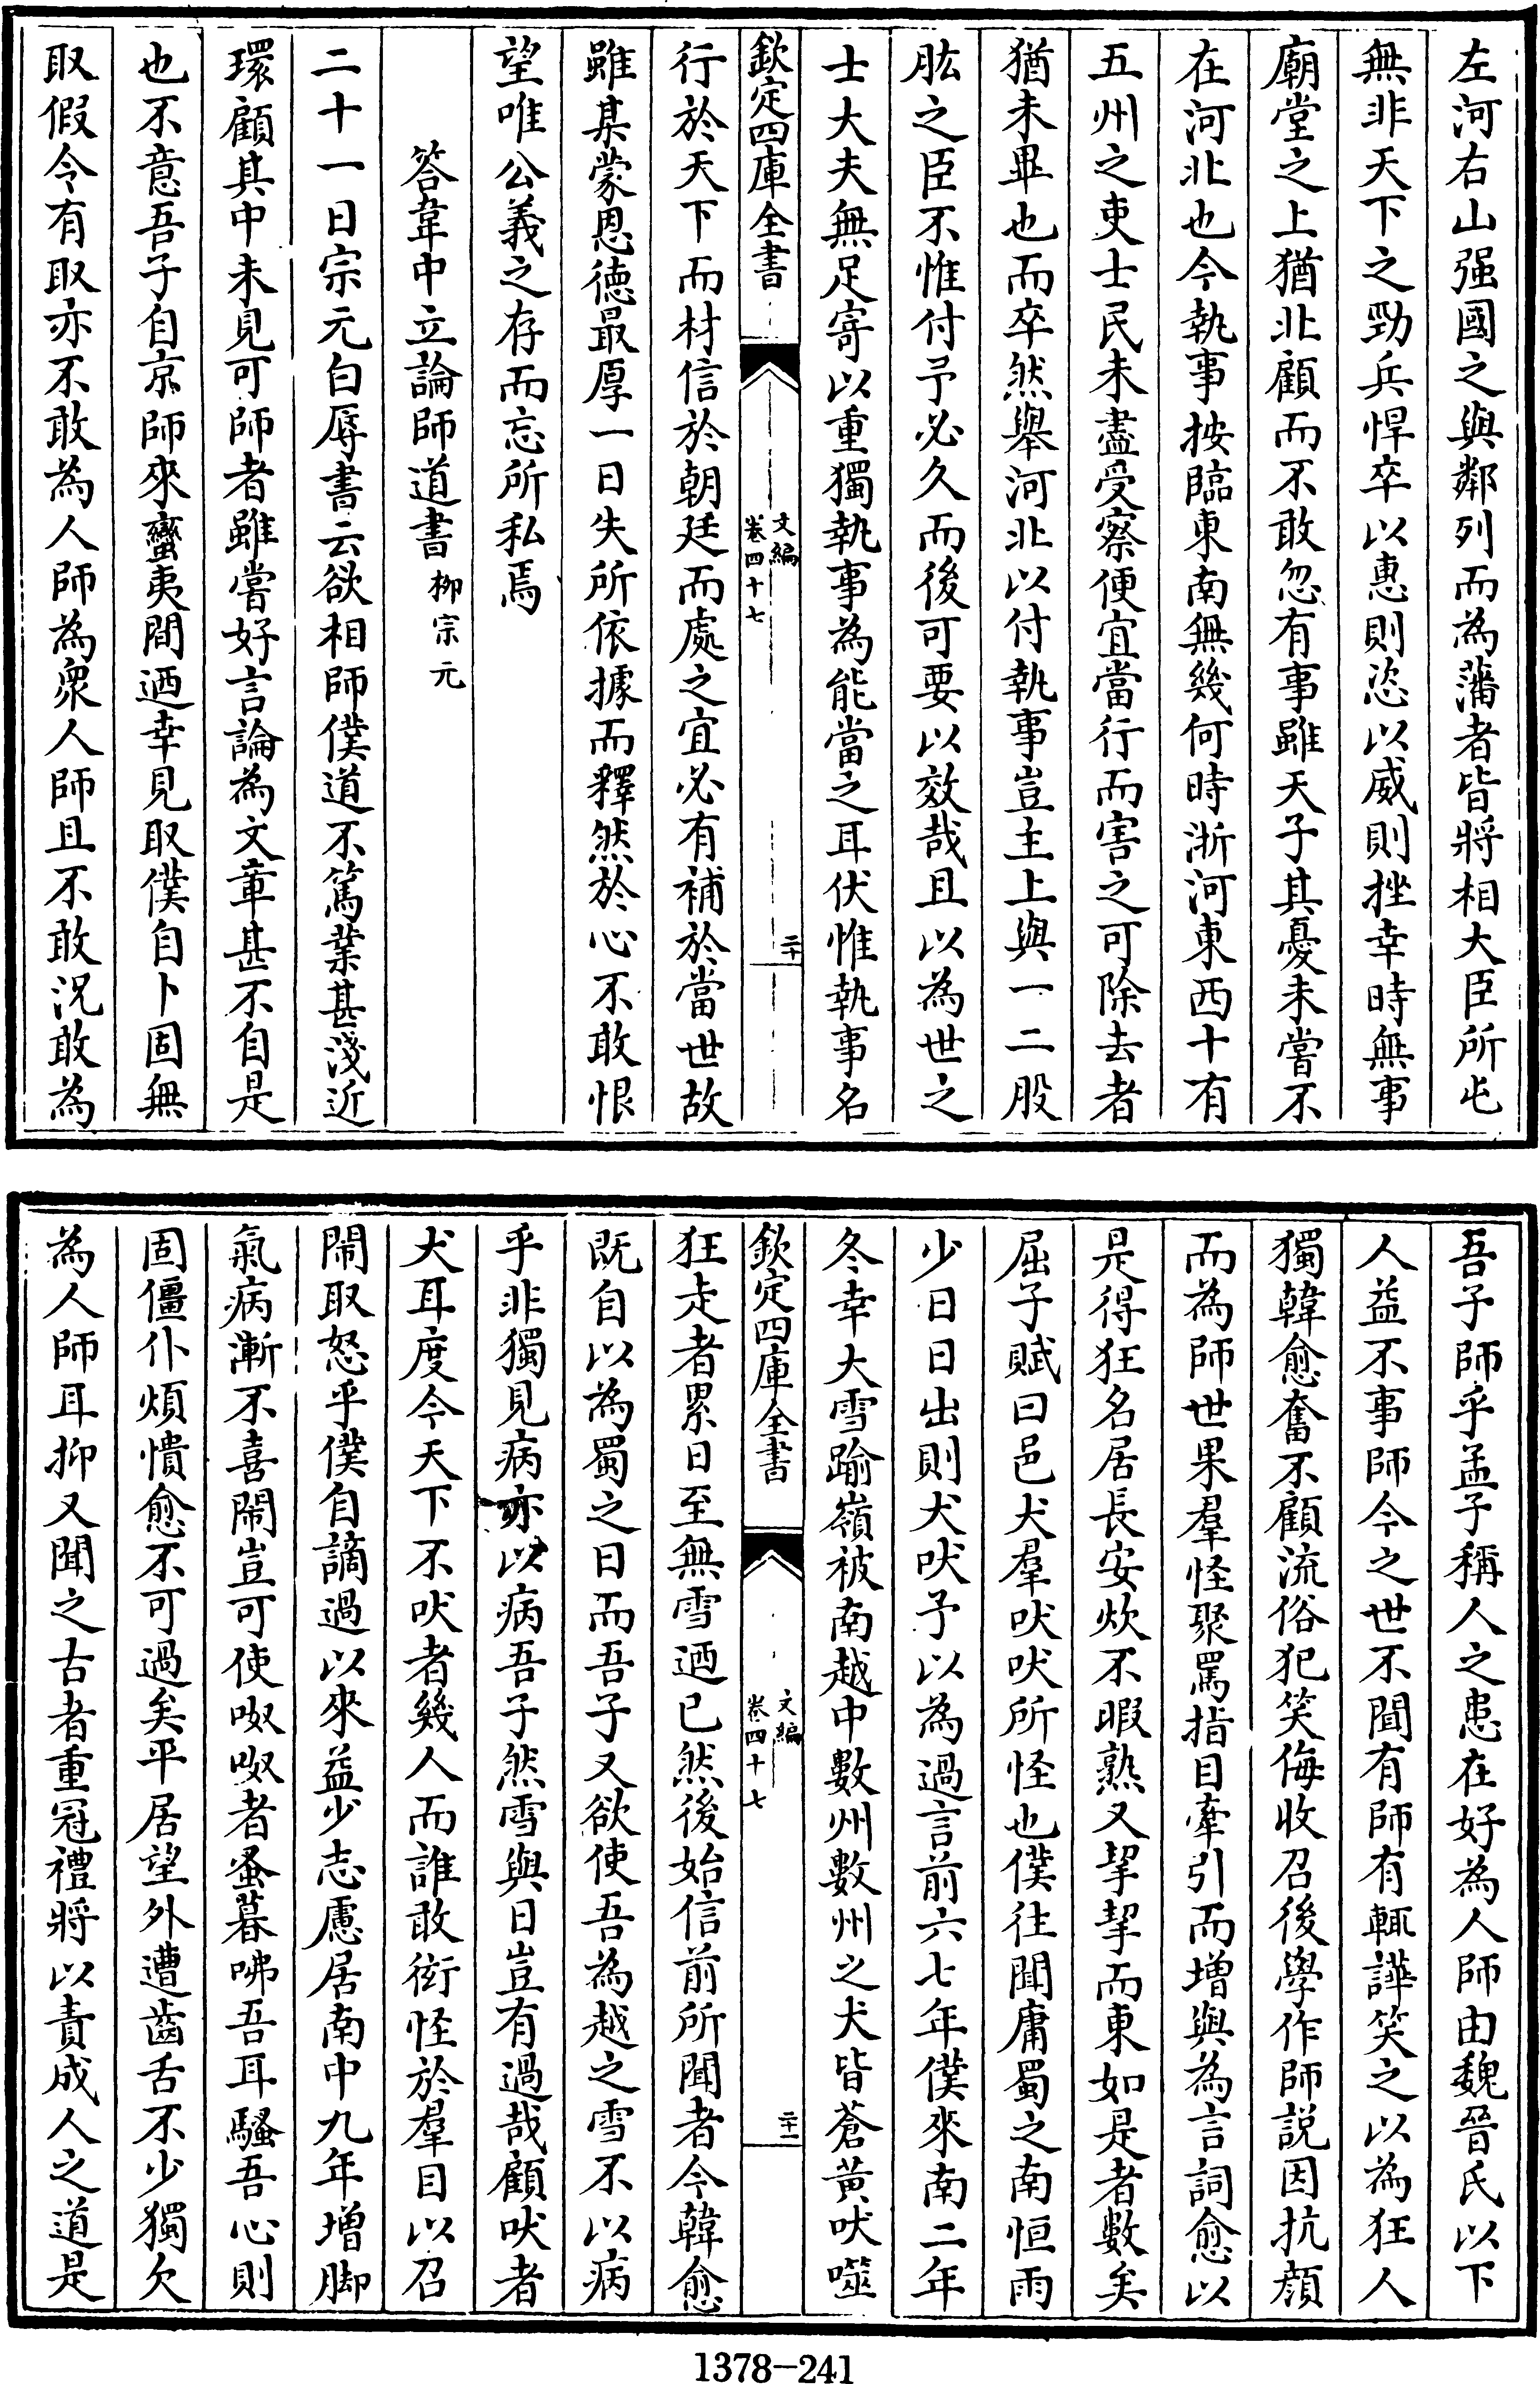 左河右山强國之與鄰列而為藩者皆將相大臣所屯
無非天下之勁兵悍卒以惠則恣以威則挫幸時無事
廟堂之上猶北顧而不敢忽有事雖天子其憂未嘗不
在河北也今執事按臨東南無幾何時浙河東西十有
五州之吏士民未盡受察便宜當行而害之可除去者
猶未畢也而卒然舉河北以付執事豈主上與一二股
肱之臣不惟付予必久而後可要以效哉且以為世之
士大夫無足寄以重獨執事為能當之耳伏惟執事名
欽定四庫全書
文編
卷四十七
二十
行於天下而材信於朝廷而處之宜必有補於當世故
雖某蒙恩德最厚一日失所依據而釋然於心不敢恨
望唯公義之存而忘所私焉
答韋中立論師道書 柳宗元
二十一日宗元白辱書云欲相師僕道不篤業甚淺近
環顧其中未見可師者雖嘗好言論為文章甚不自是
也不意吾子自京師來蠻夷間迺幸見取僕自卜固無
取假令有取亦不敢為人師為衆人師且不敢況敢為
吾子師乎孟子稱人之患在好為人師由魏晉氏以下
人益不事師今之世不聞有師有輒譁笑之以為狂人
獨韓愈奮不顧流俗犯笑侮收召後學作師説因抗顔
而為師世果羣怪聚罵指目牽引而增與為言詞愈以
是得狂名居長安炊不暇熟又挈挈而東如是者數矣
屈子賦曰邑犬羣吠吠所怪也僕往聞庸蜀之南恒雨
少日日出則犬吠予以為過言前六七年僕來南二年
冬幸大雪踰嶺被南越中數州數州之犬皆蒼黄吠噬
欽定四庫全書
文編
卷四十七
二十一
狂走者累日至無雪迺已然後始信前所聞者今韓愈
既自以為蜀之日而吾子又欲使吾為越之雪不以病
乎非獨見病亦以病吾子然雪與日豈有過哉顧吠者
犬耳度今天下不吠者幾人而誰敢衒怪於羣目以召
閙取怒乎僕自謫過以來益少志慮居南中九年增脚
氣病漸不喜閙豈可使呶呶者蚤暮咈吾耳騷吾心則
固僵仆煩憒愈不可過矣平居望外遭齒舌不少獨欠
為人師耳抑又聞之古者重冠禮將以責成人之道是
1378-241